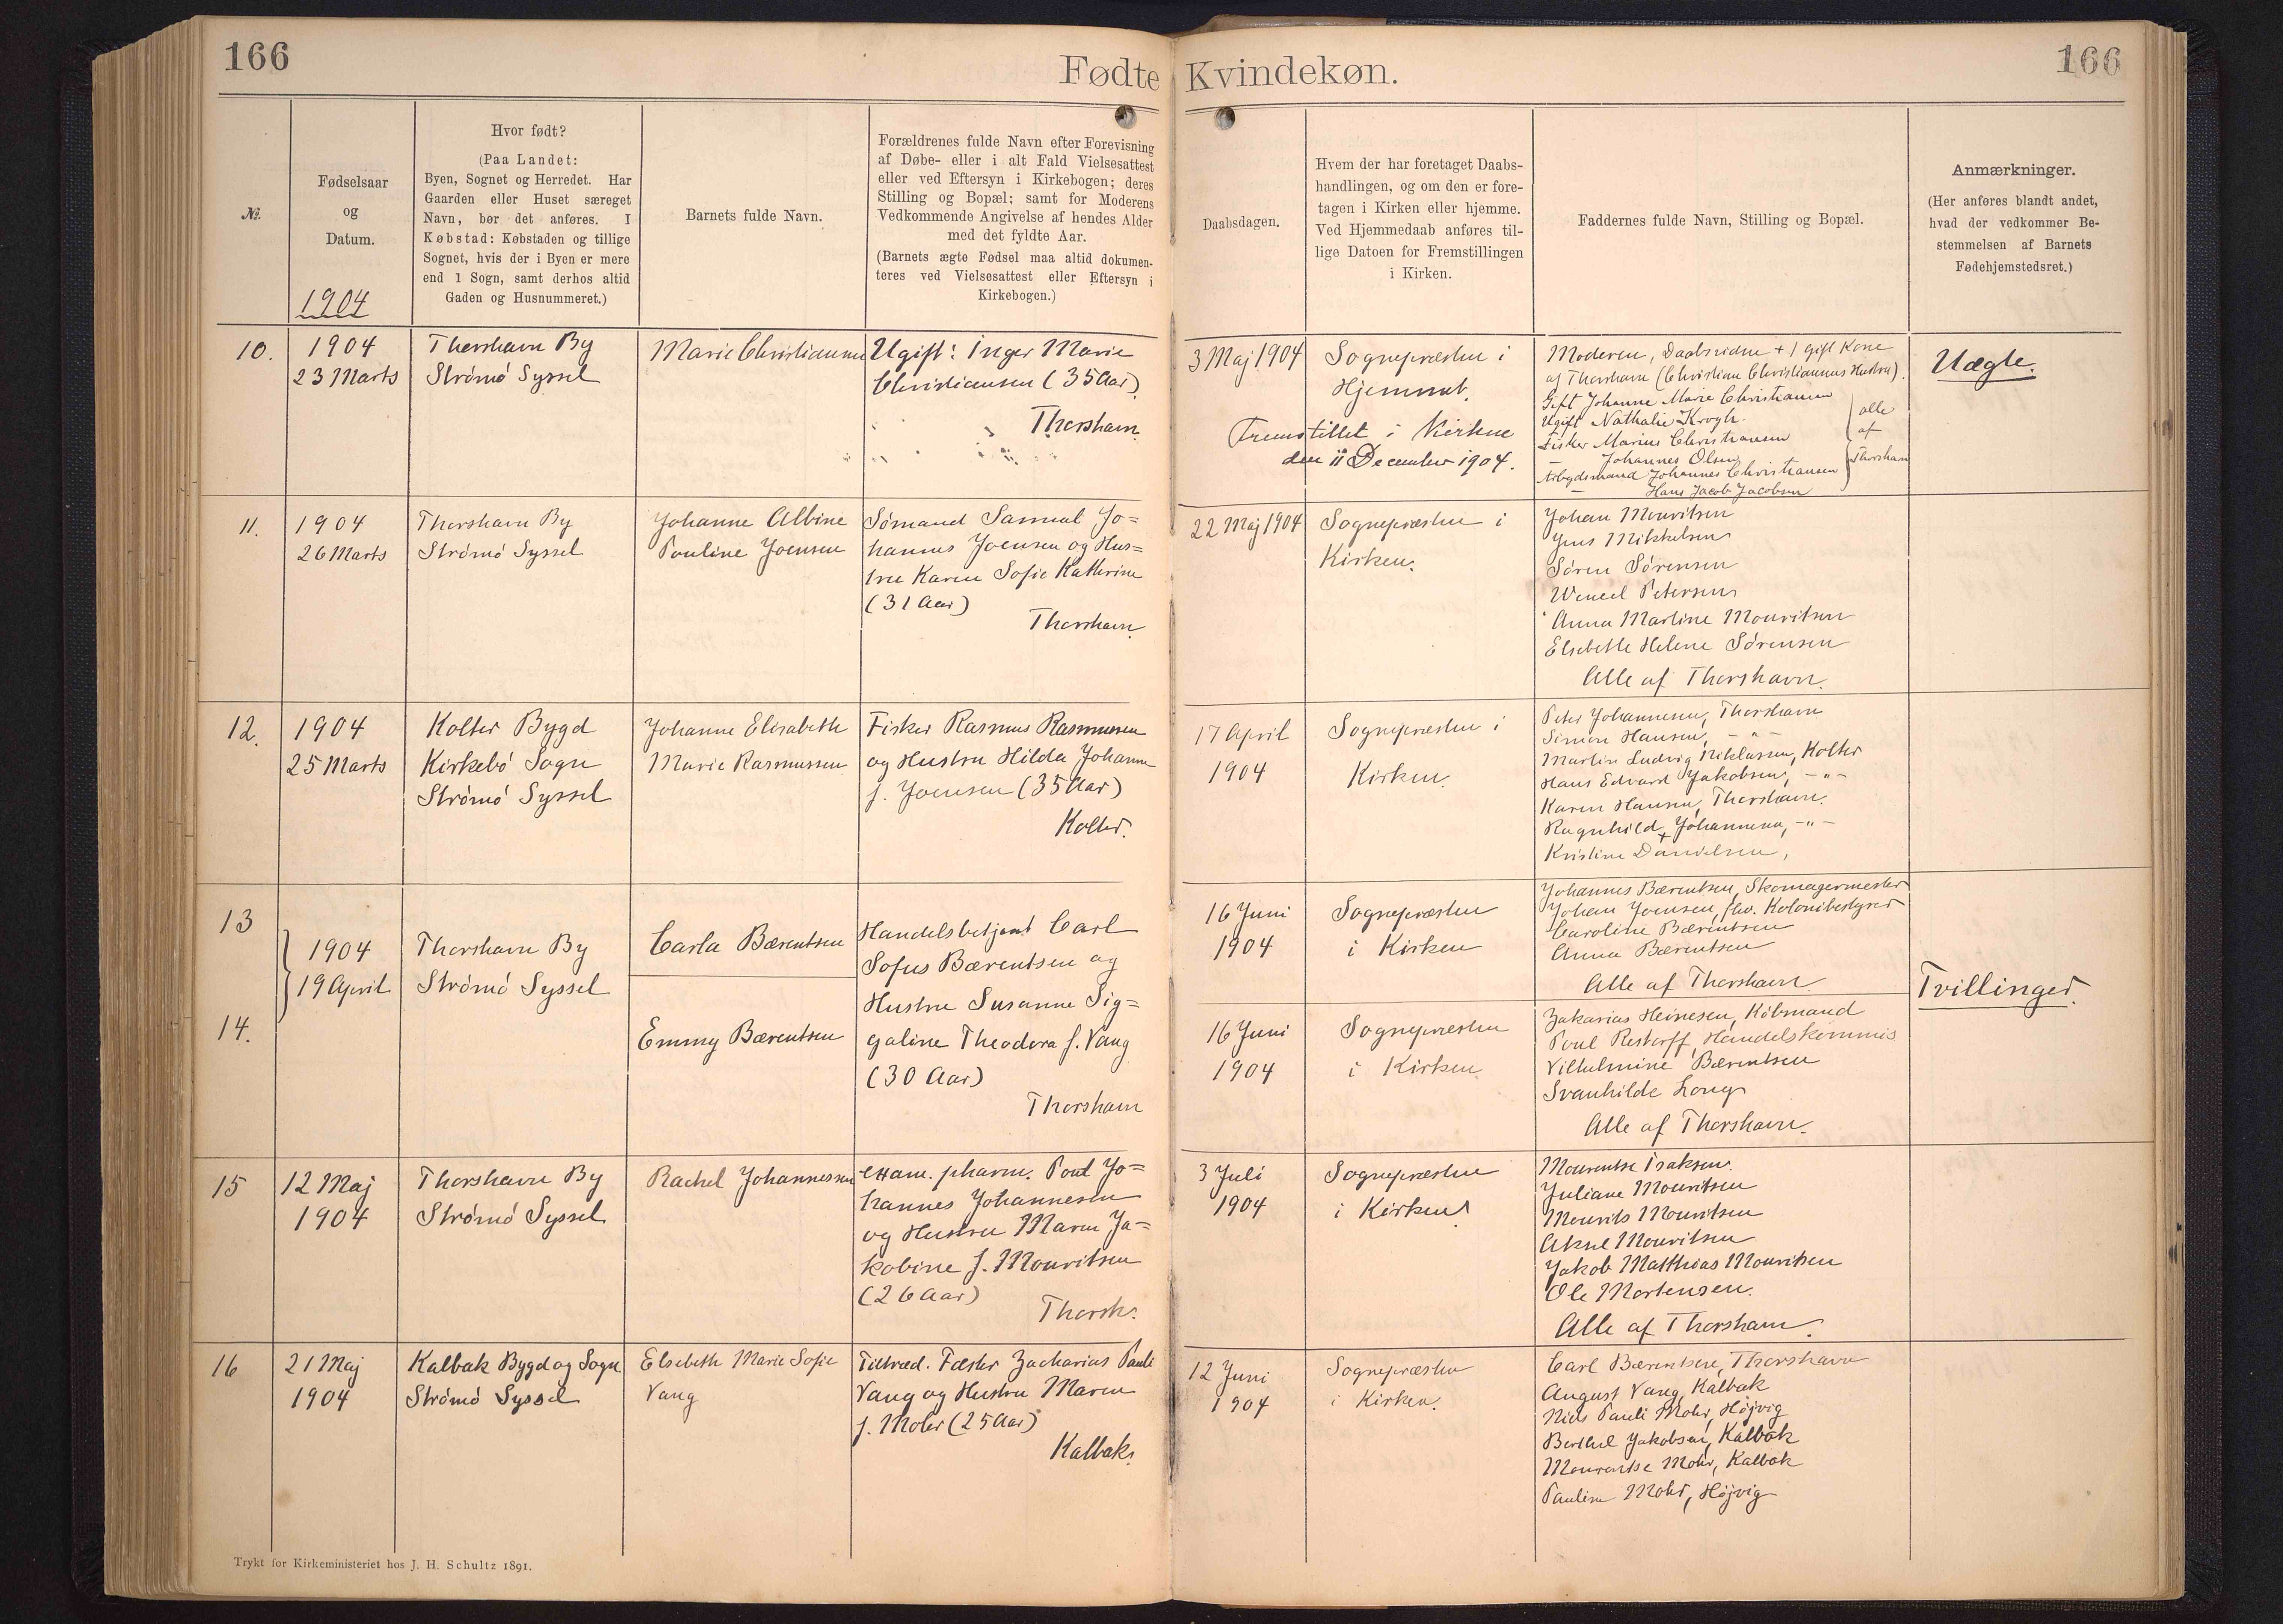 166
Fødte Kvindekøn.
166
№.
Fødselsaar
og
Datum.
1904
Hvor født?
(Paa Landet:
Byen, Sognet og Herredet. Har
Gaarden eller Huset særeget
Navn, bør det anføres. I
Købstad: Købstaden og tillige
Sognet, hvis der i Byen er mere
end 1 Sogn, samt derhos altid
Gaden og Husnummeret.)
Barnets fulde Navn.
Forældrenes fulde Navn efter Forevisning
af Døbe- eller i alt Fald Vielsesattest
eller ved Eftersyn i Kirkebogen; deres
Stilling og Bopæl; samt for Moderens
Vedkommende Angivelse af hendes Alder
med det fyldte Aar.
(Barnets ægte Fødsel maa altid dokumen-
teres ved Vielsesattest eller Eftersyn i
Kirkebogen.)
Daabsdagen.
Hvem der har foretaget Daabs-
handlingen, og om den er fore-
tagen i Kirken eller hjemme.
Ved Hjemmedaab anføres til-
lige Datoen for Fremstillingen
i Kirken.
Faddernes fulde Navn, Stilling og Bopæl.
Anmærkninger.
(Her anføres blandt andet,
hvad der vedkommer Be-
stemmelsen af Barnets
Fødehjemstedsret.)
10.
1904
23 Marts
Thorshavn By
Strømø Syssel
Marie Christiansen
Ugift: Inger Marie
Christiansen (35 Aar)
Thorshavn
3 Maj 1904
Sognepræsten i
Hjemmet.
Fremstillet i Kirken
den 11 December 1904.
Moderen, Daabsvidne + 1 gift Kone
af Thorshavn (Christian Christiansens Hustru).
Gift Johanne Marie Christiansen
Ugift Nathalie Krogh.
Fisker Marius Christiansen
— Johannes Olsen
Arbejdsmand Johannes Christiansen
— Hans Jacob Jacobsen
alle
af
Thorshavn
Uægte.
11.
1904
26 Marts
Thorshavn By
Strømø Syssel
Johanne Albine
Pouline Joensen
Sømand Samuel Jo=
hannes Joensen og Hus=
tru Karen Sofie Kathrine
(31 Aar)
Thorshavn
22 Maj 1904
Sognepræsten i
Kirken.
Johan Mouritsen
Jens Mikkelsen
Søren Sørensen
Wencel Petersen
Anna Martine Mouritsen
Elsebeth Helene Sørensen
Alle af Thorshavn.
12.
1904
25 Marts
Kolter Bygd
Kirkebø Sogn
Strømø Syssel
Johanne Elisabeth
Marie Rasmussen
Fisker Rasmus Rasmussen
og Hustru Hilda Johanne
f. Joensen (35 Aar)
Kolter.
17 April
1904
Sognepræsten i
Kirken.
Peter Johannesen, Thorshavn
Simon Hansen, - " -
Martin Ludvig Niklassen, Kolter
Hans Edvard Jakobsen, - " -
Karen Hansen, Thorshavn.
Ragnhild Johannesen, - " -
Kristine Danielsen,
13
14.
1904
19 April
Thorshavn By
Strømø Syssel
Carla Bærentsen
Emmy Bærentsen
Handelsbetjent Carl
Sofus Bærentsen og
Hustru Susanne Sig=
galine Theodora f. Vang
(30 Aar)
Thorshavn
16 Juni
1904
Sognepræsten
i Kirken
Johannes Bærentsen, Skomagermester
Johan Joensen, fhv. Kolonibestyrer
Caroline Bærentsen
Anna Bærentsen
Alle af Thorshavn
16 Juni
1904
Sognepræsten
i Kirken.
Zakarias Heinesen, Købmand
Poul Restorff, Handelskommis
Vilhelmine Bærentsen
Svanhilde Long
Alle af Thorshavn.
Tvillinger.
15
12 Maj
1904
Thorshavn By
Strømø Syssel
Rachel Johannessen
exam. pharm. Poul Jo=
hannes Johannesen
og Hustru Maren Ja=
kobine f. Mouritsen
(26 Aar)
Thorsh.
3 Juli
1904
Sognepræsten
i Kirken
Mourentse Isaksen.
Juliane Mouritsen
Mourits Mouritsen
Aksel Mouritsen
Jakob Matthias Mouritsen
Ole Mortensen.
Alle af Thorshavn.
16
21 Maj
1904
Kalbak Bygd og Sogn
Strømø Syssel
Elsebeth Marie Sofie
Vang
Tiltræd. Fæster Zacharias Pauli
Vang og Hustru Maren
f. Mohr (25 Aar)
Kalbak.
12 Juni
1904
Sognepræsten
i Kirken.
Carl Bærentsen, Thorshavn
August Vang, Kalbak
Niels Pauli Mohr, Højvig
Berthel Jakobsen, Kalbak
Mourentse Mohr, Kalbak
Pauline Mohr, Højvig
Trykt for Kirkeministeriet hos J. H. Schultz 1891.